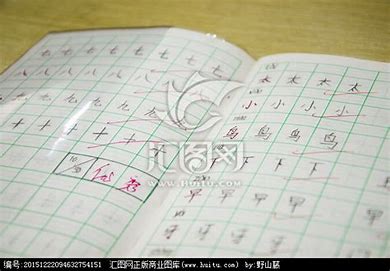 七 七 七 七 七 七 七 七
八 八 八 八 八 八 八 八
九 九 九 九 九 九
十 十 十 十 十
优秀
太 太 太 太
小 小 小 小
鸟 鸟 鸟 鸟
下 下 下 下
早 早 早 早
牙 牙 牙 牙
汇图网
www.huitu.com
编号:20151222094632754151 汇图网正版商业图库(www.huitu.com) by:野山慧